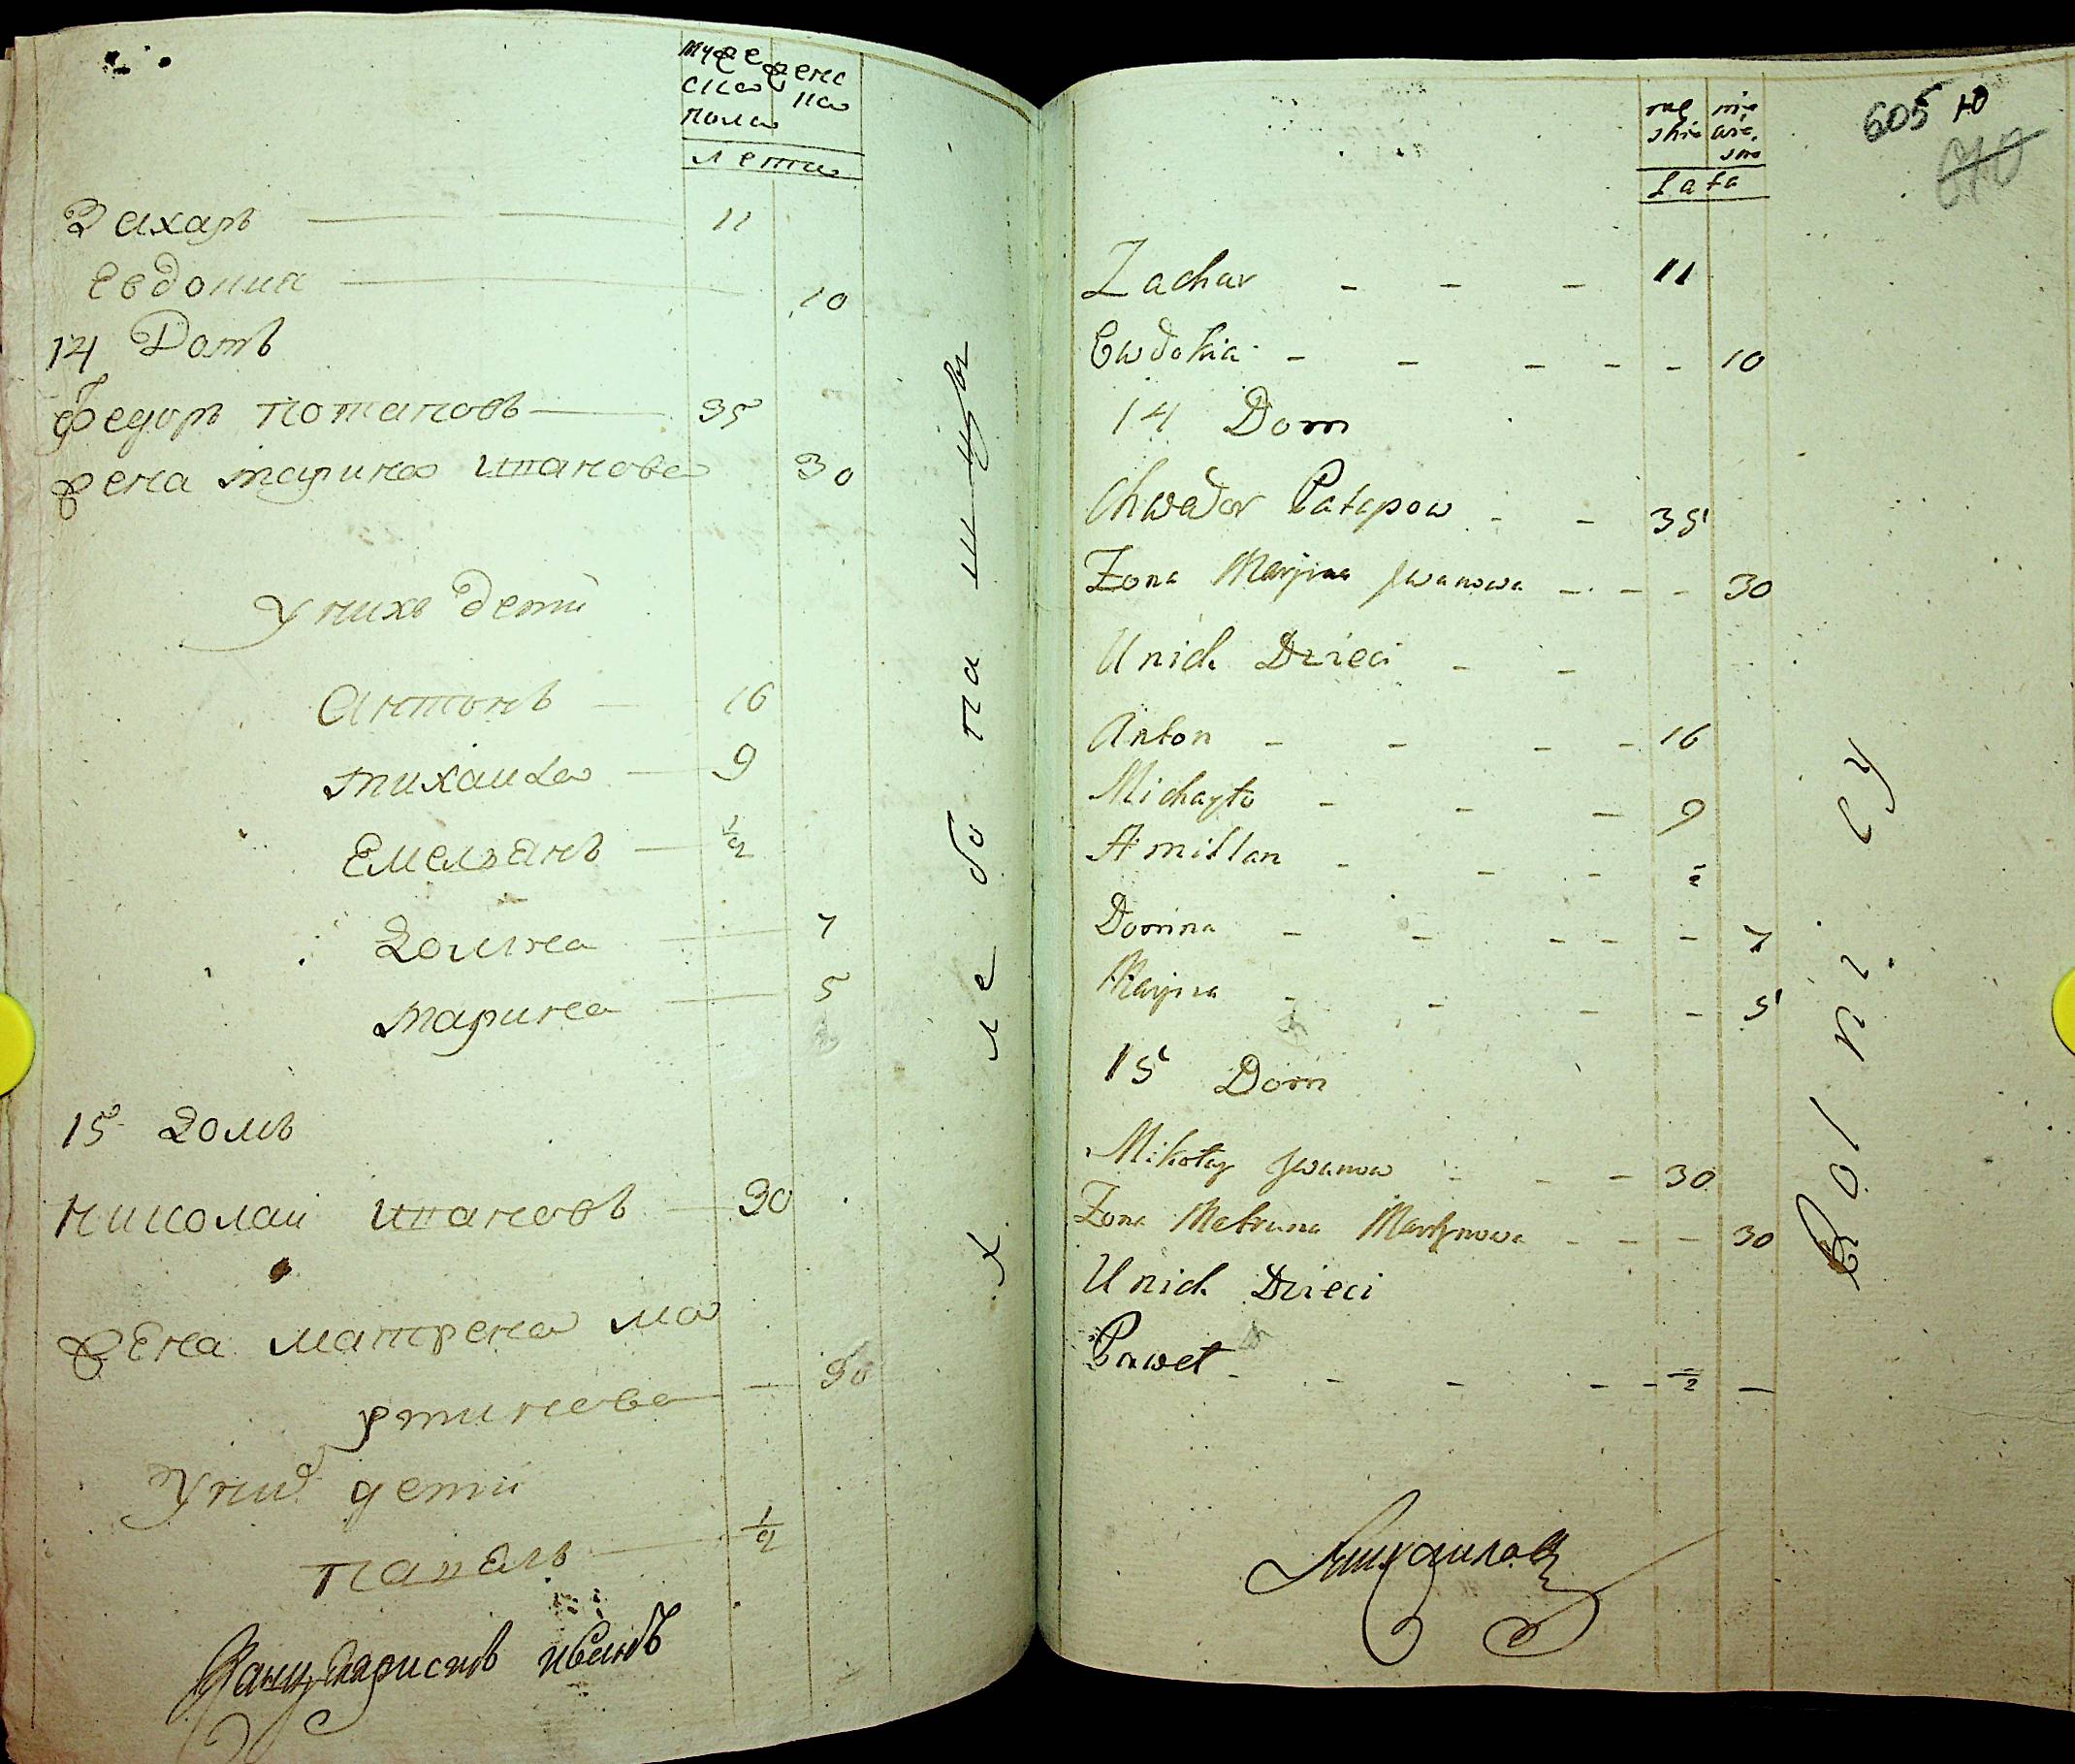 мужес женс
ска на
пола
лета
Захаръ 11
Евдокиа 10
14 Домъ
Федоръ Потаповъ 35
жена марина ивановa 30
У нихъ дети
Антонъ 16
михаила 9
Емельянъ 1/2
Домна 7
марина 5
15 Домъ
Николаи ивановъ 30
жена матрена ма
ртинова 30
У них дети
павелъ 1/2
Канцеляристъ Ивановъ
хлебопашцы
605
670
mę nie
skie wie.
sno
Lata
Zachar - - - 11
Ewdokia - - - - - 10
14 Dom
Chwedor Patapow - - 35
Zona Maryna Jwanowa - - - 30
U nich Dzieci - -
Anton - - - - 16
Michayło - - - 9
Amillan - - - 1/2
Domna - - - - - 7
Maryna - - - - 5
15 Dom
Mikołay Jwanow - - - 30
Zona Matruna Martynowa - - - 30
U nich Dzieci
Paweł - - - - - 1/2 -
Rolnicy